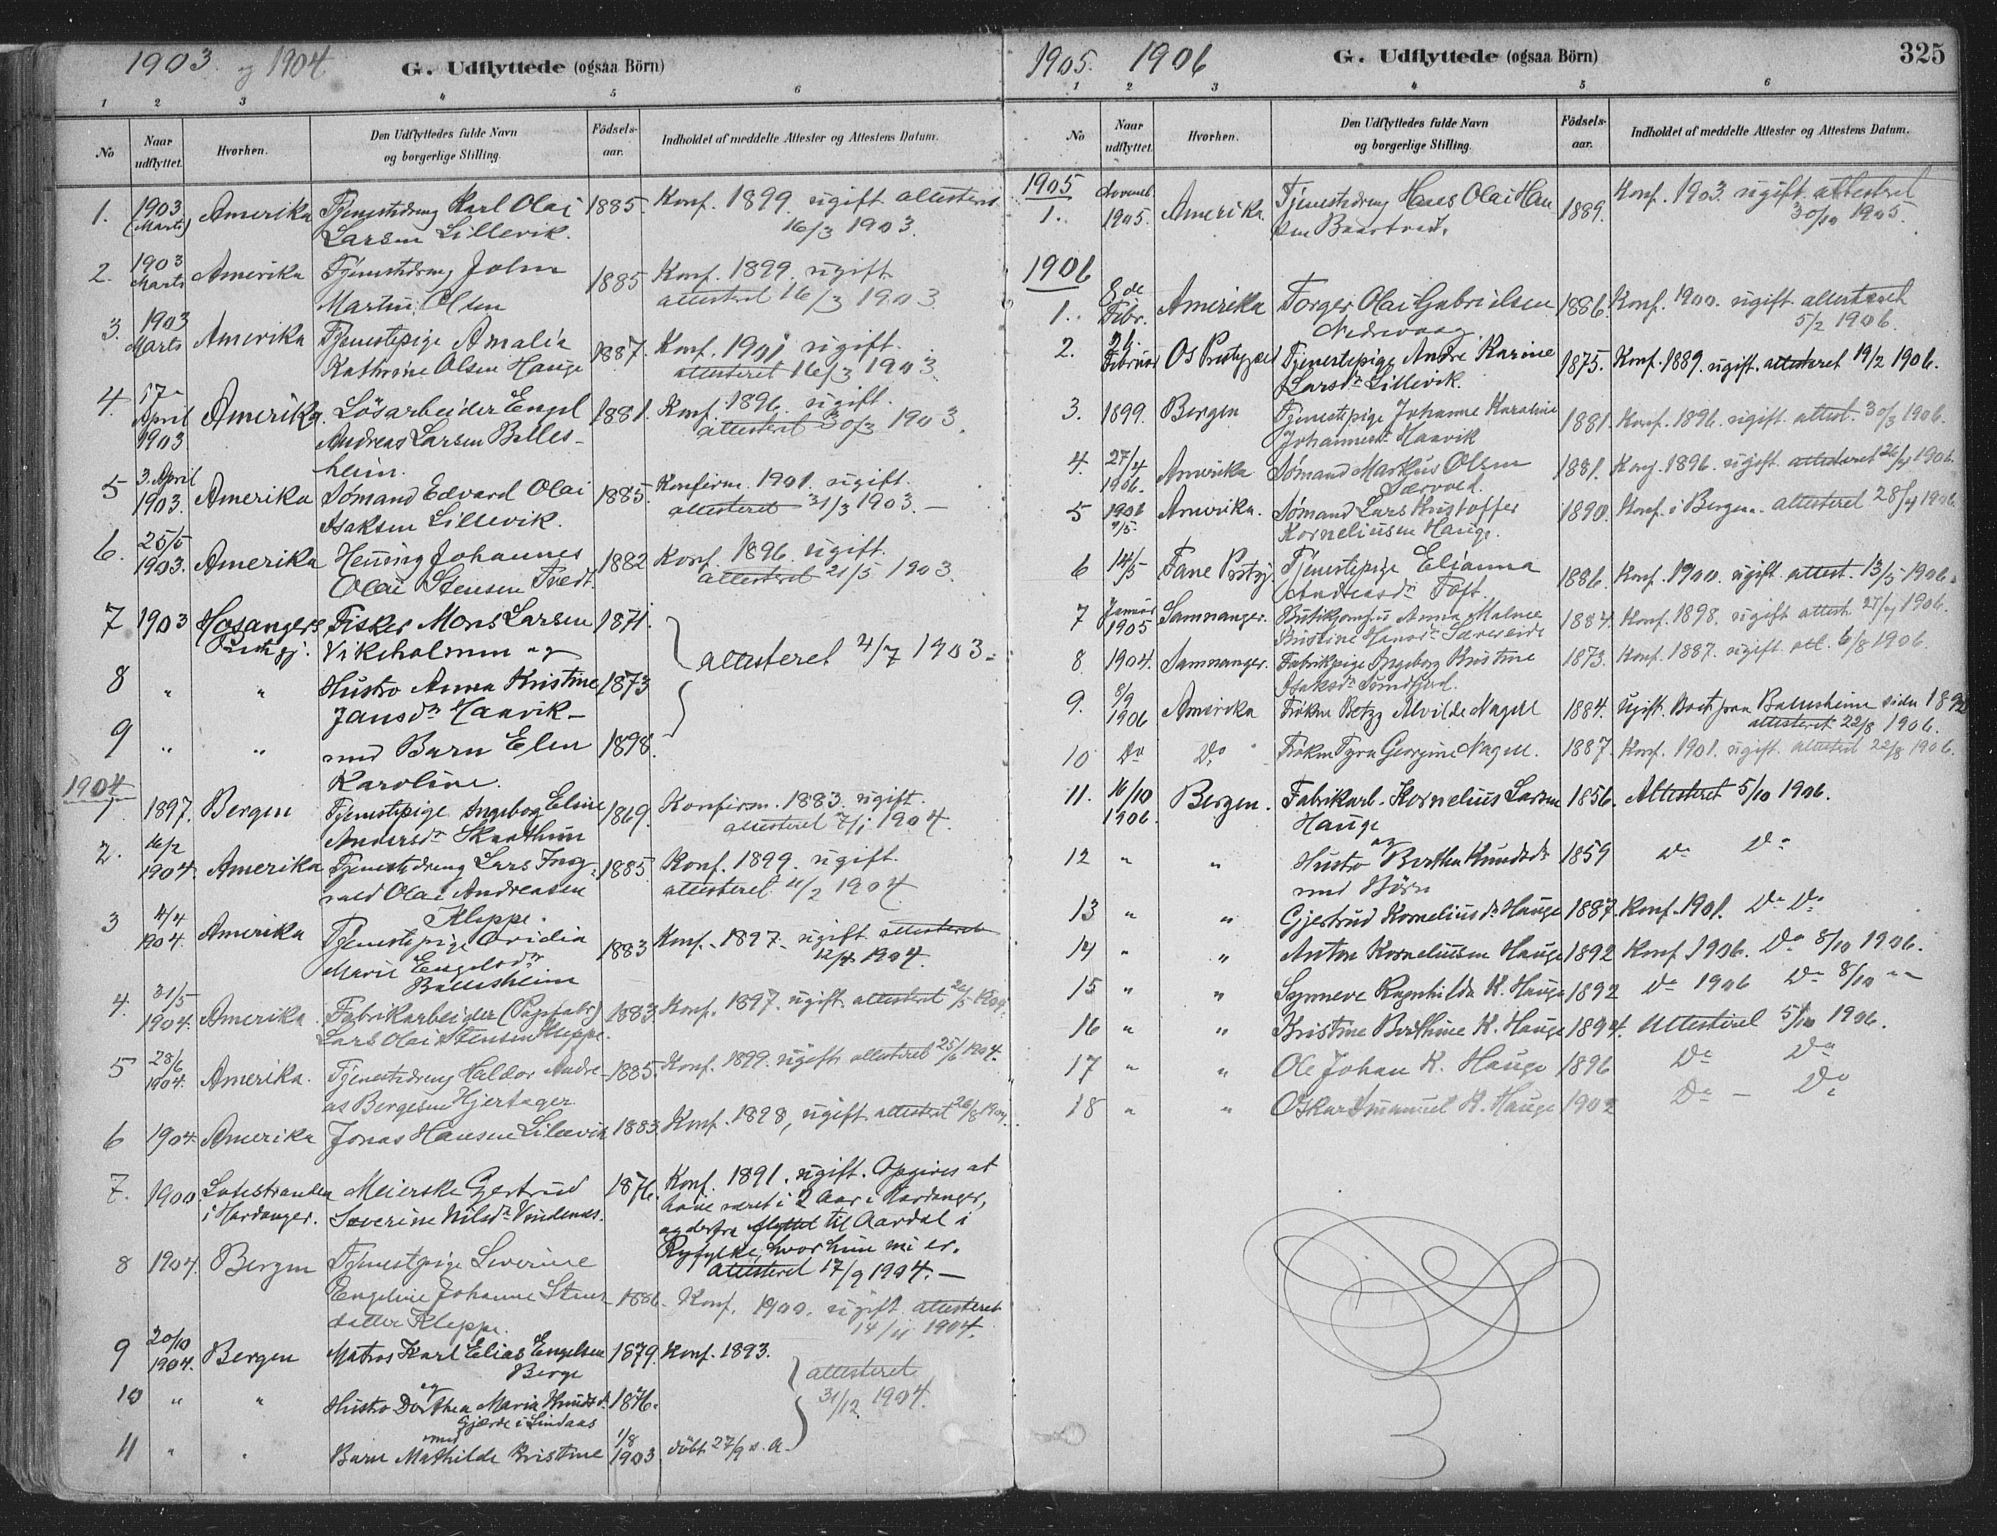 1903 og 1904 G. Udflyttede (ogsaa Börn)
1 2 3 4 5 6
No Naar udflyttet. Hvorhen. Den Udflyttedes fulde Navn og borgerlige Stilling. Födsels-aar. Indholdet af meddelte Attester og Attestens Datum.
1. 1903 (Marts) Amerika Tjenestedreng Karl Olai 1885 Konf. 1899 ugift attesteret
Larsen Lillevik. 16/3 1903.
2. 1903 Marts Amerika Tjenestedreng John 1885 Konf. 1899. ugift
Martin Olsen attesteret 16/3 1903
3. 1903 Marts Amerika Tjenestepige Amalia 1887. Konf. 1901. ugift.
Kathrine Olsen Hauge attesteret 16/3 1903.
4. 17 April 1903 Amerika. Lösarbeider Engel 1881. Konf. 1896. ugift.
Andreas Larsen Balles- attesteret 30/3 1903.
heim.
5 3. April 1903. Amerika Sömand Edvard Olai 1885. Konfirm. 1901. ugift.
Isaksen Lillevik. attesteret 31/3 1903.—
6. 25/5 1903. Amerika Henning Johannes 1882 Konf. 1896. ugift.
Olai Stensen Tvedt. attesteret 21/5 1903.
7 1903 Hosangers Fisker Mons Larsen 1871.
Prestegj. Vikeholmen og attesteret 2/7 1903.
8 " " Hustro Anna Kristine 1873
Jansdr Haavik—
9 " " med Barn Elen 1898.
Karoline.
1904
1 1897. Bergen Tjenestepige Ingeborg Eline 1869. Konfirm. 1883. ugift.
Andersdr Skaathun attesteret 7/1 1904.
2. 16/2 1904. Amerika Tjenestedreng Lars Ing- 1885. Konf. 1899. ugift.
vald Olai Andreasen attesteret 11/2 1904
Kleppe.
3 14/4 1904. Amerika Tjenestepige Ovidia 1883 Konf. 1897. ugift attesteret
Marie Engelsdr 12/4 1904.
Ballesheim
4. 31/5 1904. Amerika. Fabrikarbeider (Papfabr) 1883. Konf. 1897. ugift attesteret 26/5 1904.
Lars Olai Stensen Kleppe.
5 28/6 1904. Amerika. Tjenestedreng Haldor Andre- 1885. Konf. 1899. ugift attesteret 25/6 1904.
as Bergesen Hjertager.
6 1904. Amerika Jonas Hansen Lillevik 1883. Konf. 1898, ugift. attesteret 26/8 1904.
7. 1900. Meierske Gjertrud 1876. Konf. 1891. ugift. Opgives at
i Hardanger. Severine Nilsdr Vindenæs. have været i 2 Aar i Hardanger,
og derfra flyttet til Aardal i
Ryfylke, hvor hun nu er.
attesteret 17/9 1904.—
8 1904. Bergen Tjenestepige Severine
Engeline Johanne Stens- 1886. Konf. 1900. ugift. attesteret
datter Kleppe. 14/11 1904.
9 20/10 1904. Bergen Matros Karl Elias Engelsen 1879. Konf. 1893.
Berge attesteret
10 " " og Hustro Dorthea Maria Knudsd. 1876. 31/12 1904.
Gjærde i Lindaas
11 " " med Barn Mathilde Kristine 1/8 1903 döbt 27/9 s. A.
1905. 1906 G. Udflyttede (ogsaa Börn) 325
1 2 3 4 5 6
No Naar udflyttet. Hvorhen. Den Udflyttedes fulde Navn og borgerlige Stilling. Födsels-aar. Indholdet af meddelte Attester og Attestens Datum.
1905
1. Novemb. 1905. Amerika Tjenestedreng Hans Olai Han 1889. Konf. 1903. ugift attesteret
sen Baartvedt. 30/10 1905.
1906
1. 8de Febr. Amerika Torger Olai Gabrielsen 1886. Konf. 1900. ugift attesteret
Nedrevaag 5/2 1906.
2. Februar Os Prestegjæld Tjenestepige Andre Karine 1875. Konf. 1889. ugift. attesteret 19/2 1906.
Larsdr Lillevik.
3. 1899. Bergen Tjenestepige Johanne Karoline 1881. Konf. 1896. ugift. attest. 30/3 1906.
Johannesdr Haavik
4. 27/4 1906. Amerika Sømand Markus Olsen 1881. Konf. 1896. ugift. attesteret 26/4 1906.
Særvold.
5 1906 Amerika. Sømand Lars Kristoffer 1890. Konf. i Bergen. attesteret 28/4 1906.
Korneliusen Hauge.
6 14/5 Fane Prstgj. Tjenestepige Elianna 1886. Konf. 1900. ugift. attest. 13/5 1906.
Andreasdr Toft.
7 Januar 1905 Samnanger. Anna Malene 1884. Konf. 1898. ugift attest. 27/7 1906.
Kristine
8 1904. Samnanger. Fabrikpige Ingeborg Kristine 1873. Konf. 1887. ugift. att. 6/8 1906.
Isaksdr
9. 8/9 1906 Amerika Frøken Betzy Alvilde Nagell 1884. ugift. Bort fra Ballesheim siden 1892
attesteret 22/8 1906.
10 Do Do Frøken Tyra Georgine Nagell. 1887. Konf. 1901. ugift. attesteret 22/8 1906.
11. 16/10 1906. Bergen. Fabrikarb. Kornelius Larsen 1856. Attesteret 5/10 1906.
Hauge
og
12 " " Hustro Bertha Knudsdr 1859 Do Do
med Börn
13 " " Gjertrud Korneliusdr Hauge 1887. Konf. 1901. Do Do
14 " " Anton Korneliusen Hauge 1892 Konf 1906. Do 8/10 1906.
15 " " Synneve Ragnhilda K. Hauge 1892 Do 1906 Do 8/10 "
16 " " Kristine Berthine K. Hauge 1894. Attesteret 5/10 1906.
17 " " Ole Johan K. Hauge 1896 Do Do
18 " " Oskar Emanuel K. Hauge 1902 Do — Do